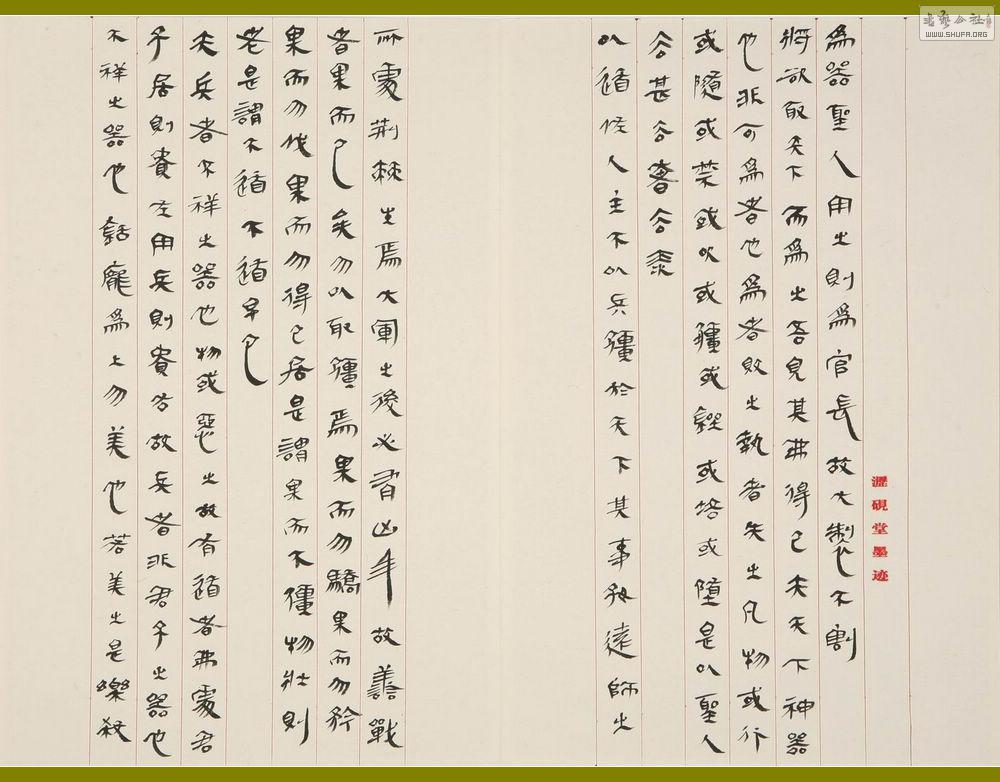 書藝公社
WWW.SHUFA.ORG
瀝硯堂墨迹
為器聖人用之則為官長故大製不割
將欲取天下而為之吾見其弗得已夫天下神器
也非可為者也為者敗之執者失之凡物或行
或隨或禁或吹或彊或或培或墮是以聖人
去甚去奢去泰
以道佐人主不以兵彊於天下其事好遠師之
所處荊棘生焉大軍之後必有凶年故善戰
者果而已矣勿以取彊焉果而勿驕果而勿矜
果而勿伐果而勿得已居是謂果而不彊物壯則
老是謂不道不道早已
夫兵者不祥之器也物或惡之故有道者弗處君
子居則貴左用兵則貴右故兵者非君子之器也
不祥之器也銛龐為上勿美也若美之是樂殺